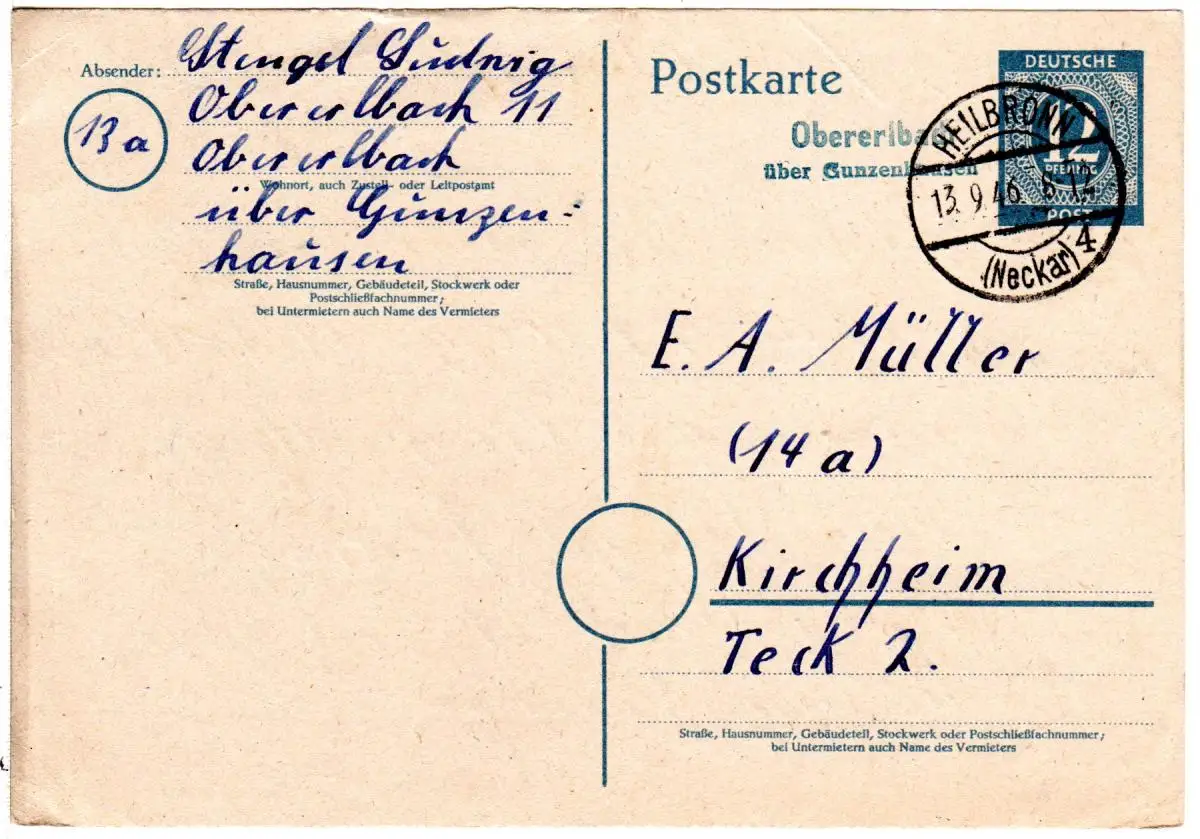 Absender: Stengel Ludwig
Obererlbach 11
13a
Obererlbach
Wohnort, auch Zustell- oder Leitpostamt
über Gunzen-
hausen
Straße, Hausnummer, Gebäudeteil, Stockwerk oder
Postschließfachnummer;
bei Untermietern auch Name des Vermieters
Postkarte
DEUTSCHE
12
PFENNIG
POST
Obererlbach
über Gunzenhausen
HEILBRONN
13.9.46. 8-12
(Neckar) 4
E. A. Müller
(14a)
Kirchheim
Teck 2.
Straße, Hausnummer, Gebäudeteil, Stockwerk oder Postschließfachnummer;
bei Untermietern auch Name des Vermieters